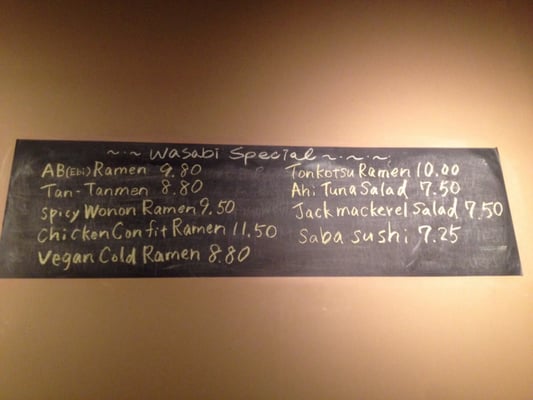 ~·~·~ Wasabi Special ~·~·~·~
AB(Ebi) Ramen 9.80
Tan-Tanmen 8.80
Spicy Wonon Ramen 9.50
Chicken Confit Ramen 11.50
Vegan Cold Ramen 8.80
Tonkotsu Ramen 10.00
Ahi Tuna Salad 7.50
Jack mackerel Salad 7.50
Saba sushi 7.25